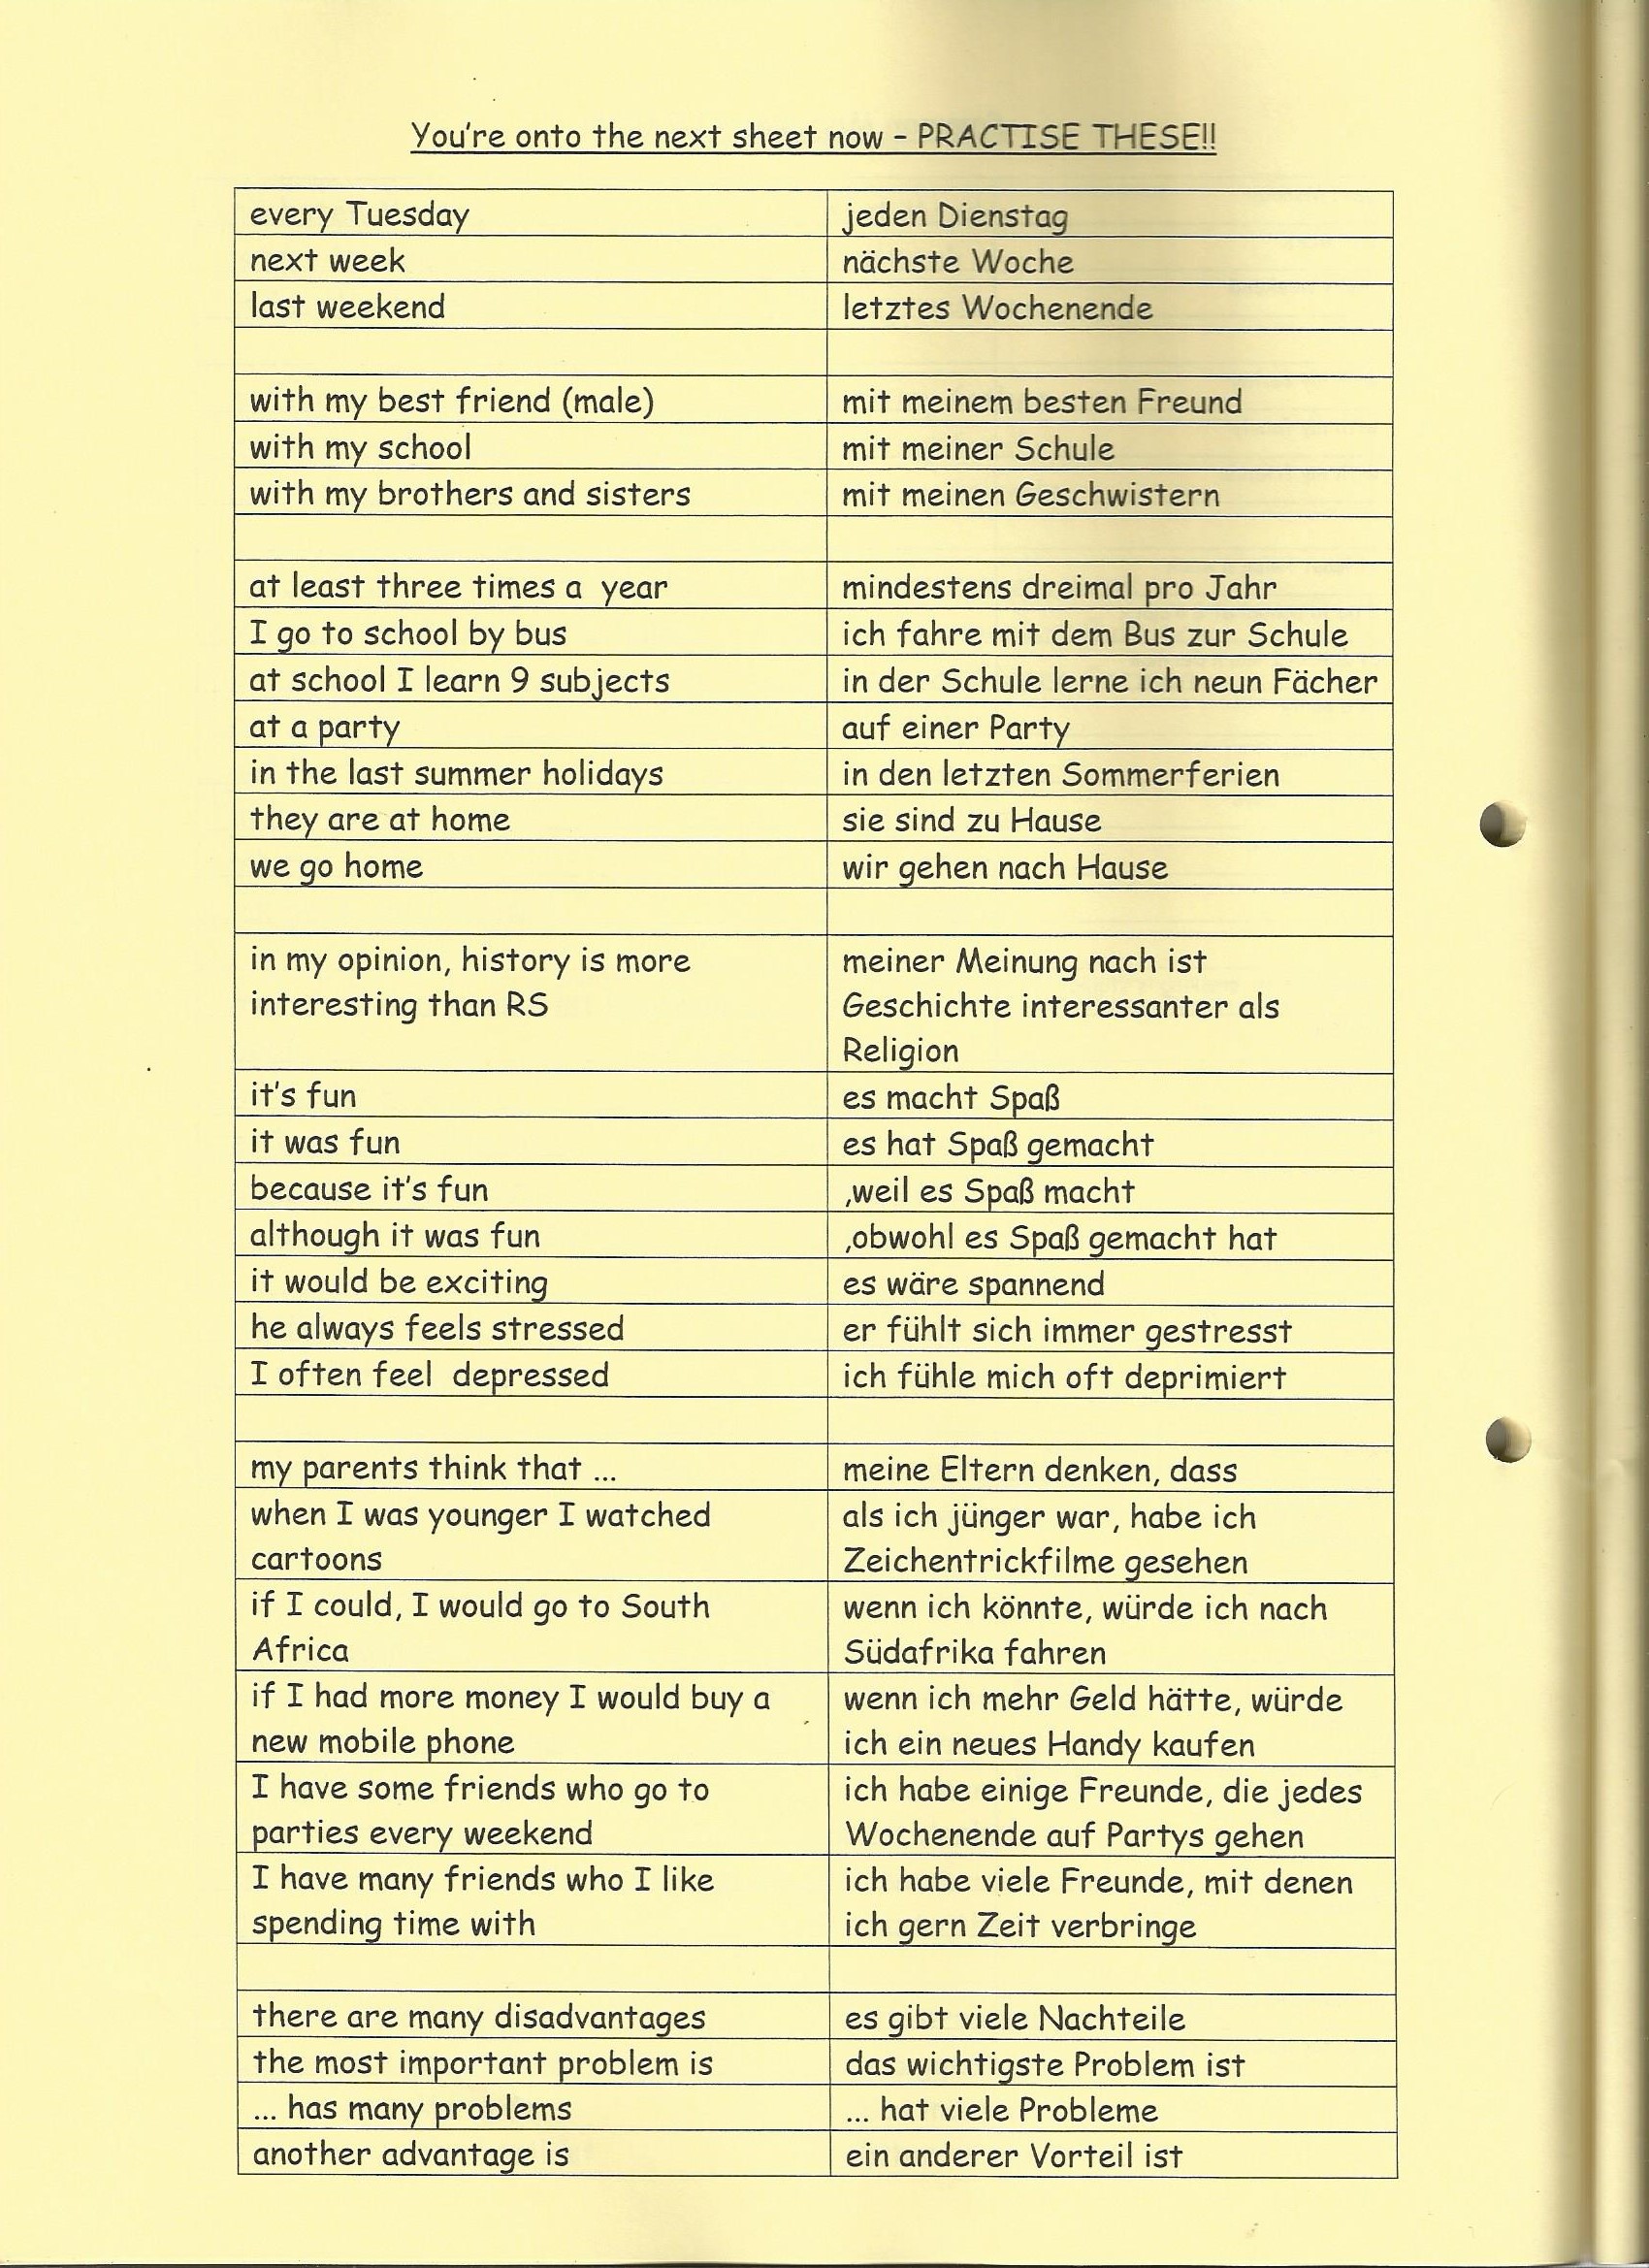 You're onto the next sheet now – PRACTISE THESE!!
every Tuesday jeden Dienstag
next week nächste Woche
last weekend letztes Wochenende
with my best friend (male) mit meinem besten Freund
with my school mit meiner Schule
with my brothers and sisters mit meinen Geschwistern
at least three times a  year mindestens dreimal pro Jahr
I go to school by bus ich fahre mit dem Bus zur Schule
at school I learn 9 subjects in der Schule lerne ich neun Fächer
at a party auf einer Party
in the last summer holidays in den letzten Sommerferien
they are at home sie sind zu Hause
we go home wir gehen nach Hause
in my opinion, history is more meiner Meinung nach ist
interesting than RS Geschichte interessanter als
Religion
it's fun es macht Spaß
it was fun es hat Spaß gemacht
because it's fun ,weil es Spaß macht
although it was fun ,obwohl es Spaß gemacht hat
it would be exciting es wäre spannend
he always feels stressed er fühlt sich immer gestresst
I often feel  depressed ich fühle mich oft deprimiert
my parents think that ... meine Eltern denken, dass
when I was younger I watched als ich jünger war, habe ich
cartoons Zeichentrickfilme gesehen
if I could, I would go to South wenn ich könnte, würde ich nach
Africa Südafrika fahren
if I had more money I would buy a wenn ich mehr Geld hätte, würde
new mobile phone ich ein neues Handy kaufen
I have some friends who go to ich habe einige Freunde, die jedes
parties every weekend Wochenende auf Partys gehen
I have many friends who I like ich habe viele Freunde, mit denen
spending time with ich gern Zeit verbringe
there are many disadvantages es gibt viele Nachteile
the most important problem is das wichtigste Problem ist
... has many problems ... hat viele Probleme
another advantage is ein anderer Vorteil ist